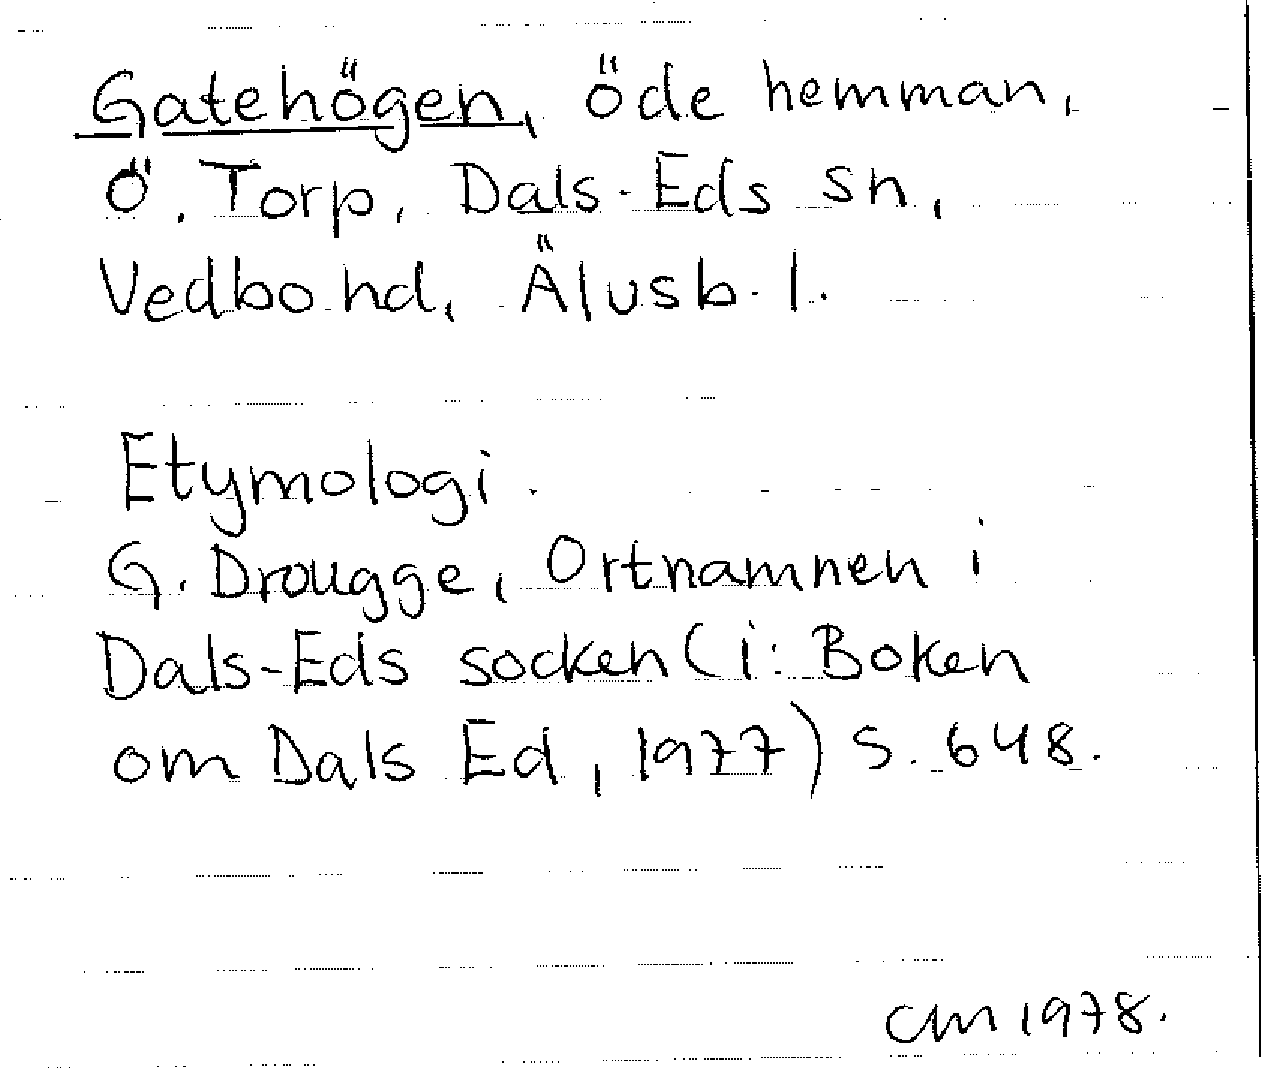 Gatehögen, öde hemman,
Ö. Torp, Dals-Eds sn,
Vedbo hd, Älvsb. l.
Etymologi.
G. Drougge, Ortnamnen i
Dals-Eds socken (i: Boken
om Dals Ed, 1977) s. 648.
CM 1978.